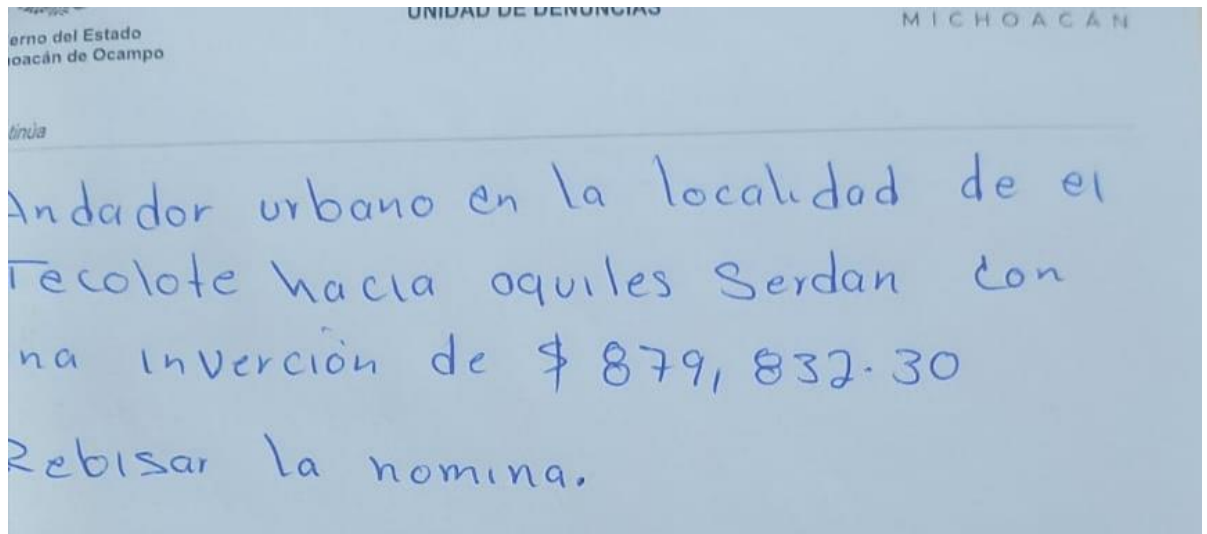 UNIDAD DE DENUNCIAS
MICHOACÁN
erno del Estado
oacán de Ocampo
tinúa
Andador urbano en la localidad de el
Tecolote hacia aquiles Serdan con
na inverción de $ 879, 832.30
Rebisar la nomina.